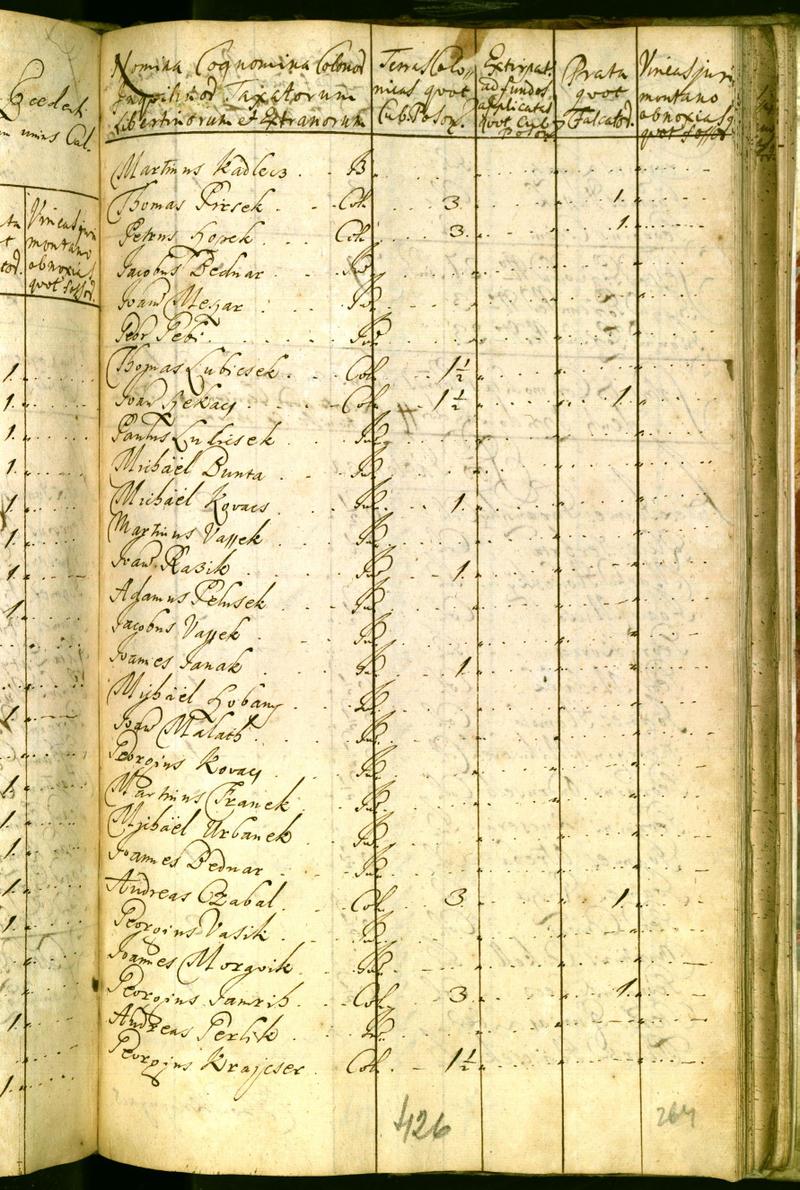 Czedek
unius Cul.
Vineas juri
montano
obnoxias
quot Fossor.
Nomina Cognomina Colonor
Inquilinor Taxatorum
Libertinorum et Extraneorum
Terras Colo
nicas quot
Cub. Poson.
Extirpat.
ad fundos
applicatas
quot Cub.
Poson
Prata
quot
Falcator.
Vineas juri
montano
obnoxias
quot Fossor
Martinus Kadlecz
Thomas Piesek Col. 3 1
Petrus Horek Col. 3 1
Jacobus Bednar Inq
Joan Mezar Inq
Petr Petri Inq
Thomas Lubicsek Col. 1½
Joan Sekacz Col. 1½ 1
Paulus Lubicsek Inq
Michäel Dunta Inq
Michäel Kovacs Inq 1
Martinus Vassek Inq
Joan Razik Inq 1
Adamus Pelusek Inq
Jacobus Vassek Inq
Joannes Janak Inq 1
Mijhäel Hobany Inq
Joan Malath Inq
Georgius Kovacz Inq
Martinus Franek Inq
Mijhäel Urbanek Inq
Joannes Bednar Inq
Andreas Czabal Col. 3 1
Georgius Vasik Inq
Joannes Morgvik Inq
Georgius Jamrih Col. 3 1
Andreas Perlik Inq
Georgius Krajcser Col. 1½
426
264